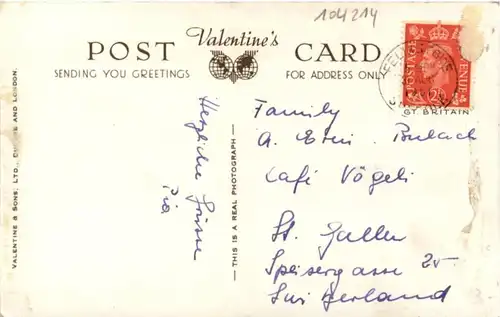 104214
Valentine's
POST CARD
SENDING YOU GREETINGS
FOR ADDRESS ONLY
POSTAGE REVENUE
GT. BRITAIN
VALENTINE & SONS, LTD., DUNDEE AND LONDON.
THIS IS A REAL PHOTOGRAPH
Herzliche Grüsse
Pia
Family
A.
Café Vögeli
St. Gallen
Speisergasse 25
Switzerland